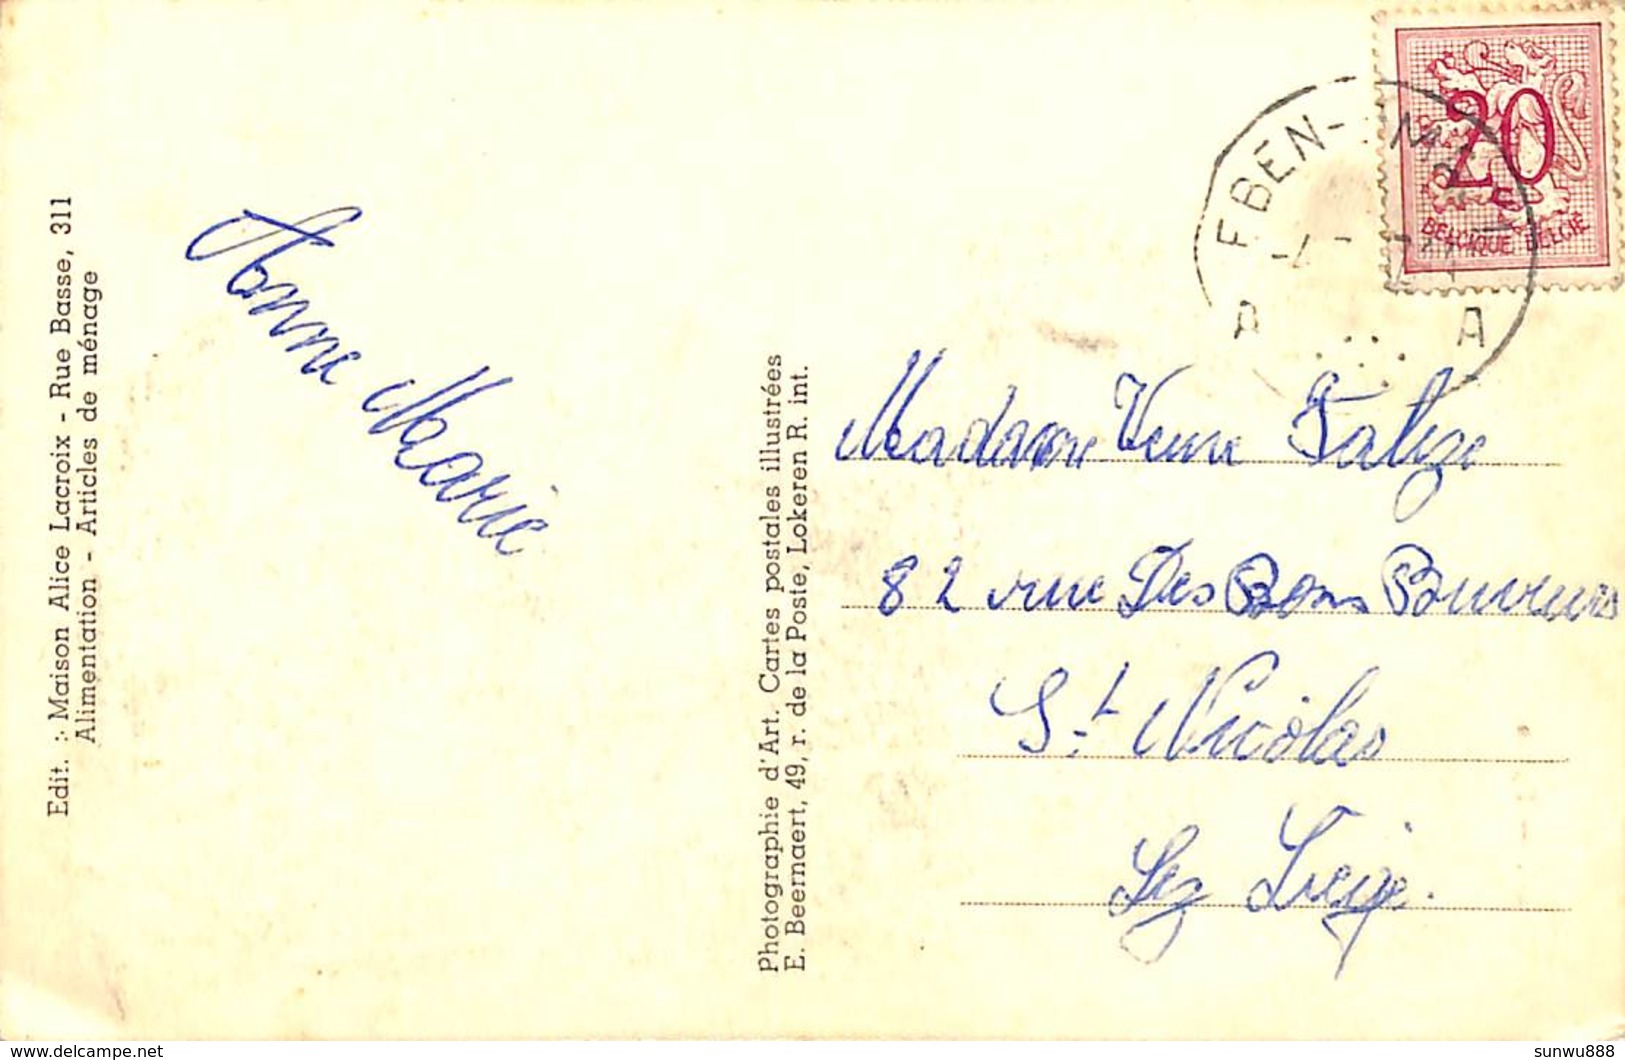 Edit. : Maison Alice Lacroix - Rue Basse, 311
Alimentation - Articles de ménage
Anne Marie
Photographie d'Art. Cartes postales illustrées
E. Beernaert, 49, r. de la Poste, Lokeren R. int.
EBEN-
A A
20
BELGIQUE BELGIË
Madame Veuve Falize
82 rue Des Bons Buveurs
St. Nicolas
Lez Liege.
sunwu888